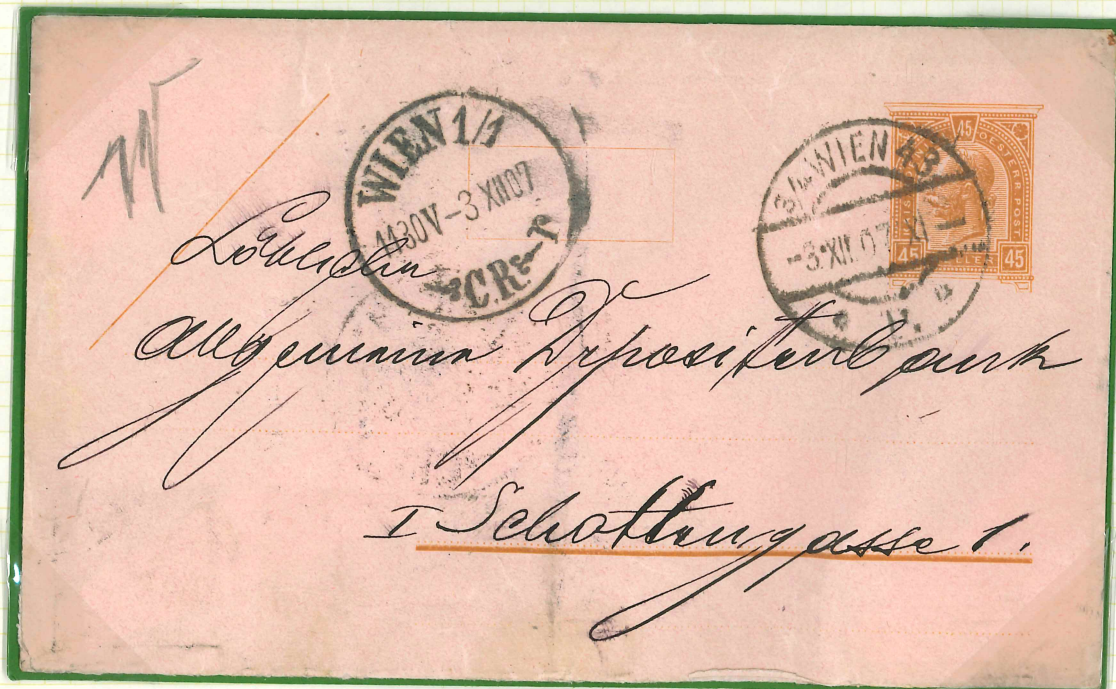 WIEN 1/1
1130V - 3 XII 07
C.R. r
WIEN 43
-3.XII.07 XI
45
OESTERR.POST
45 45
Löbliche
Allgemeine Depositenbank
I Schottengasse 1.